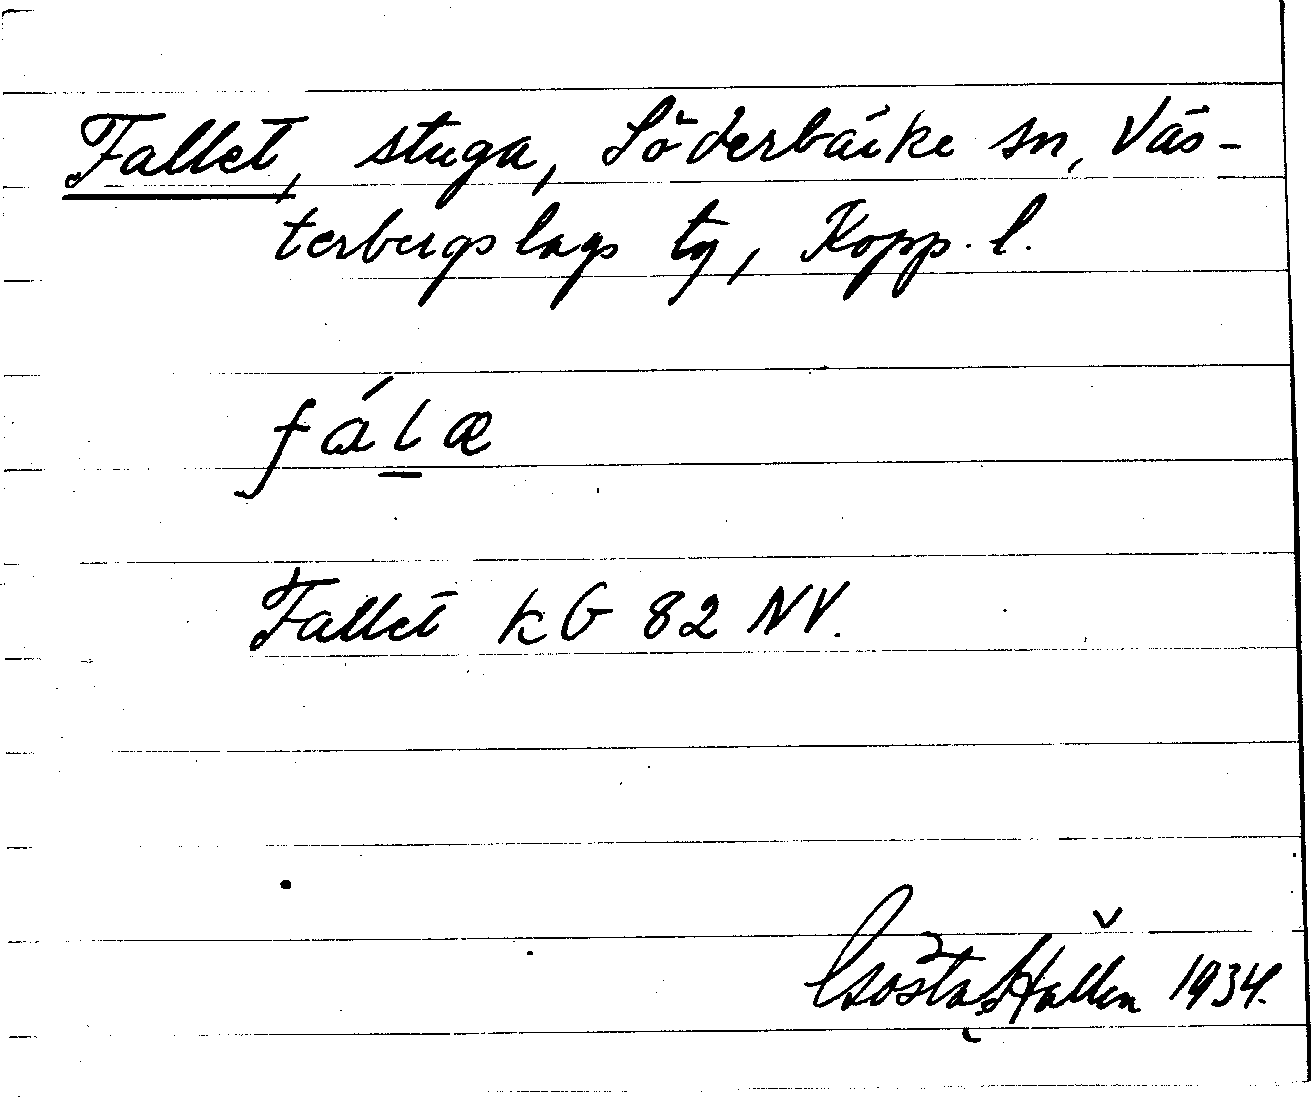 Fallet, stuga, Söderbärke sn, Väs-
terbergslags tg, Kopp. l.
fálæ
Fallet kG 82 NV.
Gösta Hallén 1934.